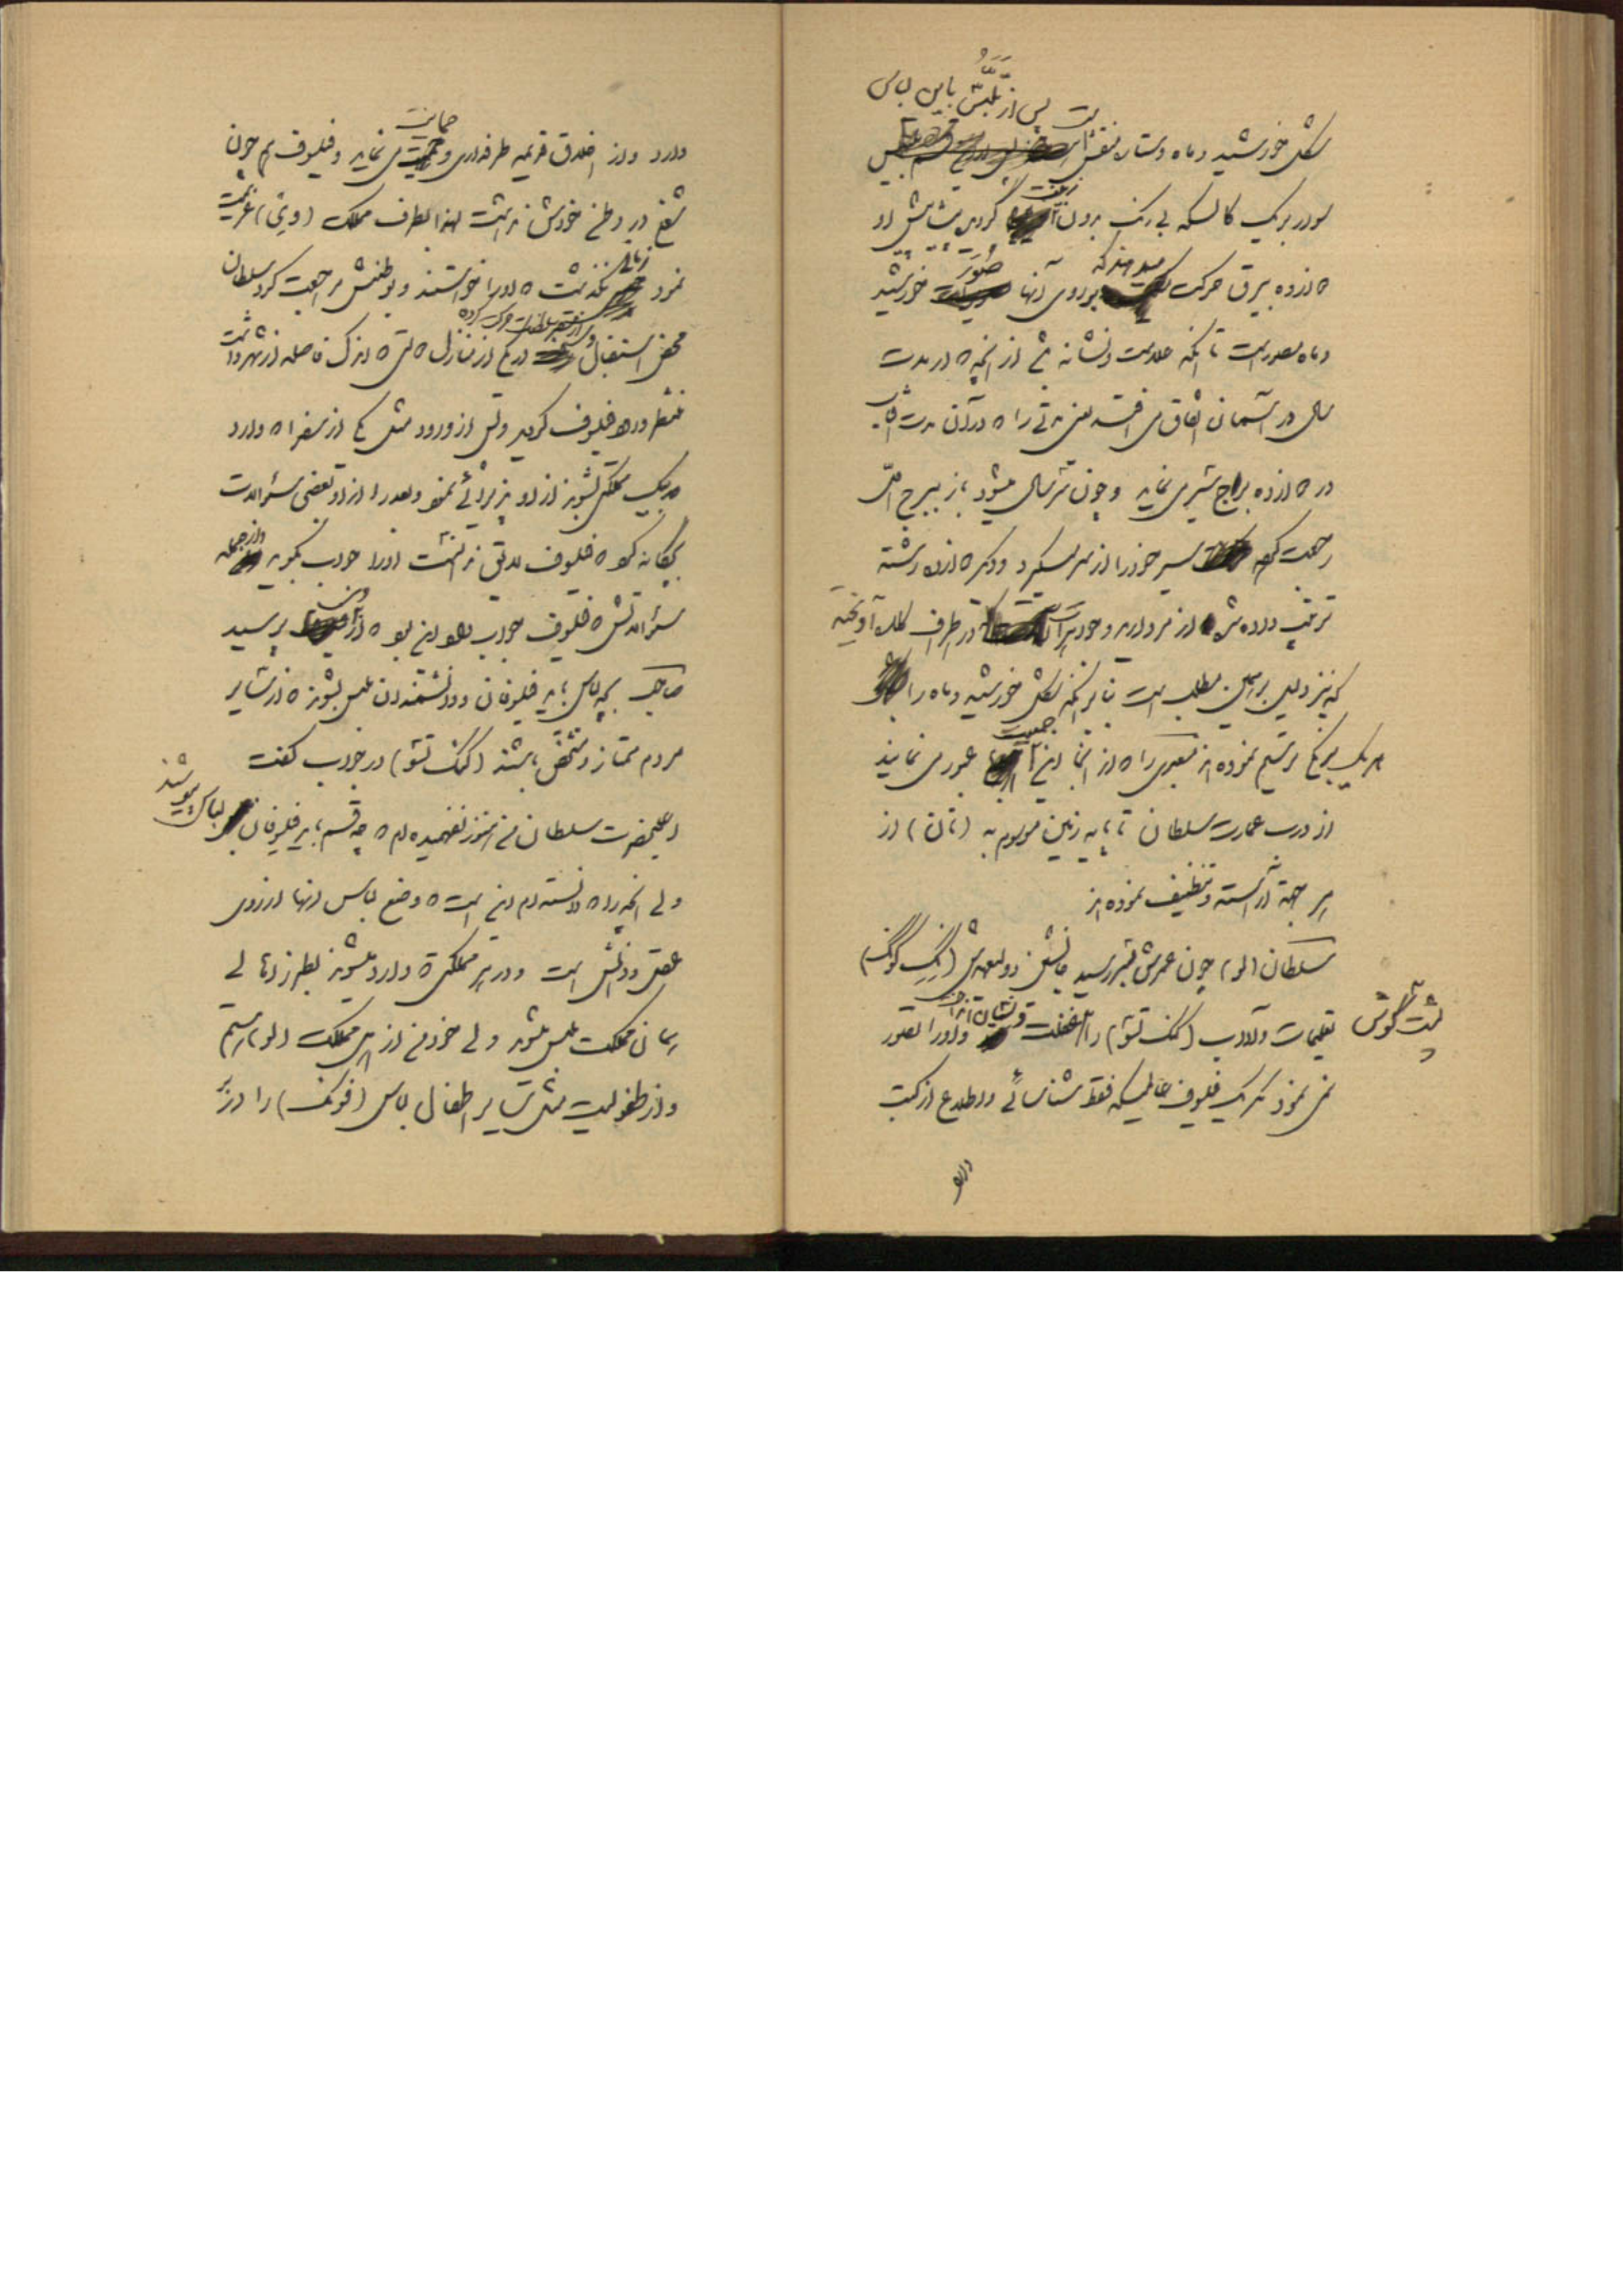 پس از تلبس باین لباس
بشکل خورشید و ماه و ستاره منقش است
سوار بر یک کالسکه بی رنگ بدون زینت گردیده پیشاپیش او
دوازده بیرق حرکت میدهند که بروی آنها صور خورشید
و ماه مصور است تا آنکه علامت و نشانه از آنچه در مدت
سال در آسمان اتفاق می افتد یعنی مدتی را که در آن مدت آفتاب
در دوازده براج سیر می نماید و چون سر سال میشود باز ببرج اول
رجعت کرده سیر خود را از سر میگیرد و دیگر دوازده رشته
ترتیب داده شده از مروارید و جواهرات در اطراف کلاه آویخته
که نیز دلیل بر همین مطلب است بنابر آنکه بشکل خورشید و ماه را
هر یک بر یکی ترسیم نموده اند معبری را که از آنجا این جمعیت عبور می نمایند
از درب عمارت سلطان تا بپایه زمین موسوم به (تان) از
هر جهة آراسته و تنظیف نموده اند
سلطان (لو) چون عمرش بآخر رسید جانشین و ولیعهدش (کنگ گونگ)
تعلیمات و آداب (کنگ تسو) را پشت گوش انداخت و او را تصور
نمی نمود مگر یک فیلوف عالمیکه فقط شناسائی و اطلاع از کتب
دارد
دارد و از اخلاق قدیمه طرفداری و حمایت می نماید و فیلسوف هم چون
شغلی در وطن خودش نداشت لهذا بطرف مملکت (وی) عزیمت
نمود زمانی نگذشت که او را خواستند و بوطنش مراجعت کرد سلطان
محض استقبال وی از مقر سلطنت حرکت کرده در یکی از منازل که فاصله از شهر داشت
منتظر ورود فیلسوف گردید و پس از ورود مثل یکی از سفرا که وارد
بر یک مملکتی بشوند از او پذیرائی نمود و بعد از او بعضی سئوالات
بچگانه کرد که فیلسوف لایق ندانست او را جواب بگوید و از جمله
سئوالاتش که فیلسوف جواب داد این بود که از وی پرسید
صاحب بچه لباس باید فیلسوفان و دانشمندان ملبس بشوند که از سایر
مردم ممتاز و مشخص باشند (کنگ تسو) در جواب گفت
اعلیحضرت سلطان من هنوز نفهمیده ام که چه قسم باید فیلسوفان لباس بپوشند
ولی آنچه را که دانسته ام این است که وضع لباس آنها از روی
عقل و دانش است و در هر مملکتی که وارد میشوند بطرز اهالی
همان مملکت ملبس میشوند ولی خود من از اهل مملکت (لو) هستم
و از طفولیت مثل سایر اطفال لباس (فونگ) را در بر